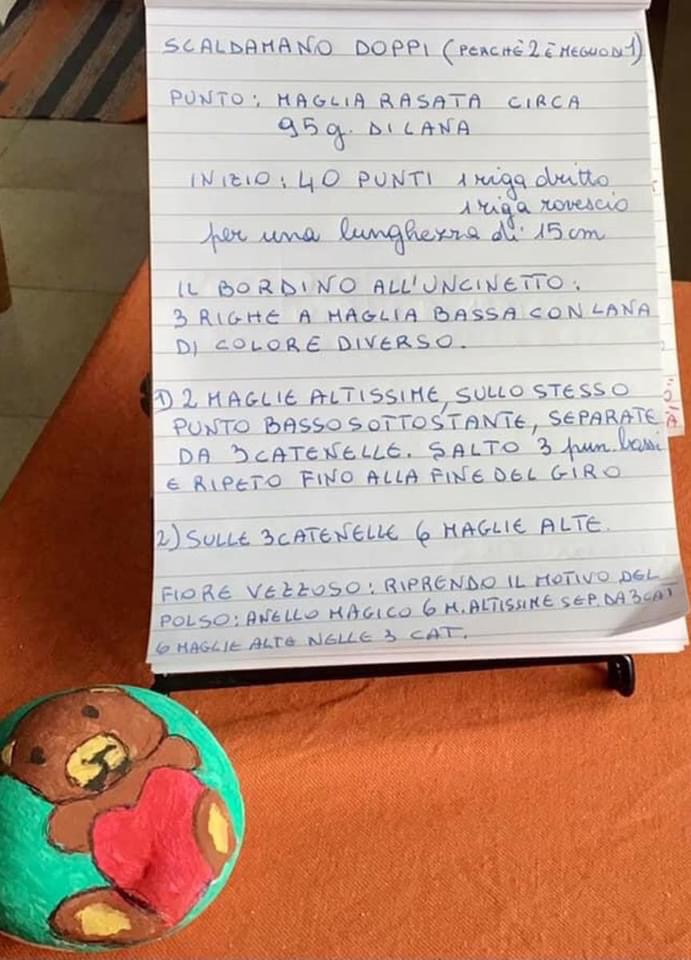 SCALDAMANO DOPPI (PERCHÈ 2 È MEGLIO DI 1)
PUNTO: MAGLIA RASATA CIRCA
95 g. DI LANA
INIZIO: 40 PUNTI 1 riga dritto
1 riga rovescio
per una lunghezza di 15 cm
IL BORDINO ALL'UNCINETTO:
3 RIGHE A MAGLIA BASSA CON LANA
DI COLORE DIVERSO.
1) 2 MAGLIE ALTISSIME, SULLO STESSO
PUNTO BASSO SOTTOSTANTE, SEPARATE
DA 3 CATENELLE. SALTO 3 pun. bassi
E RIPETO FINO ALLA FINE DEL GIRO
2) SULLE 3 CATENELLE 6 MAGLIE ALTE.
FIORE VEZZOSO: RIPRENDO IL MOTIVO DEL
POLSO: ANELLO MAGICO 6 M. ALTISSIME SEP. DA 3 CAT
6 MAGLIE ALTE NELLE 3 CAT.